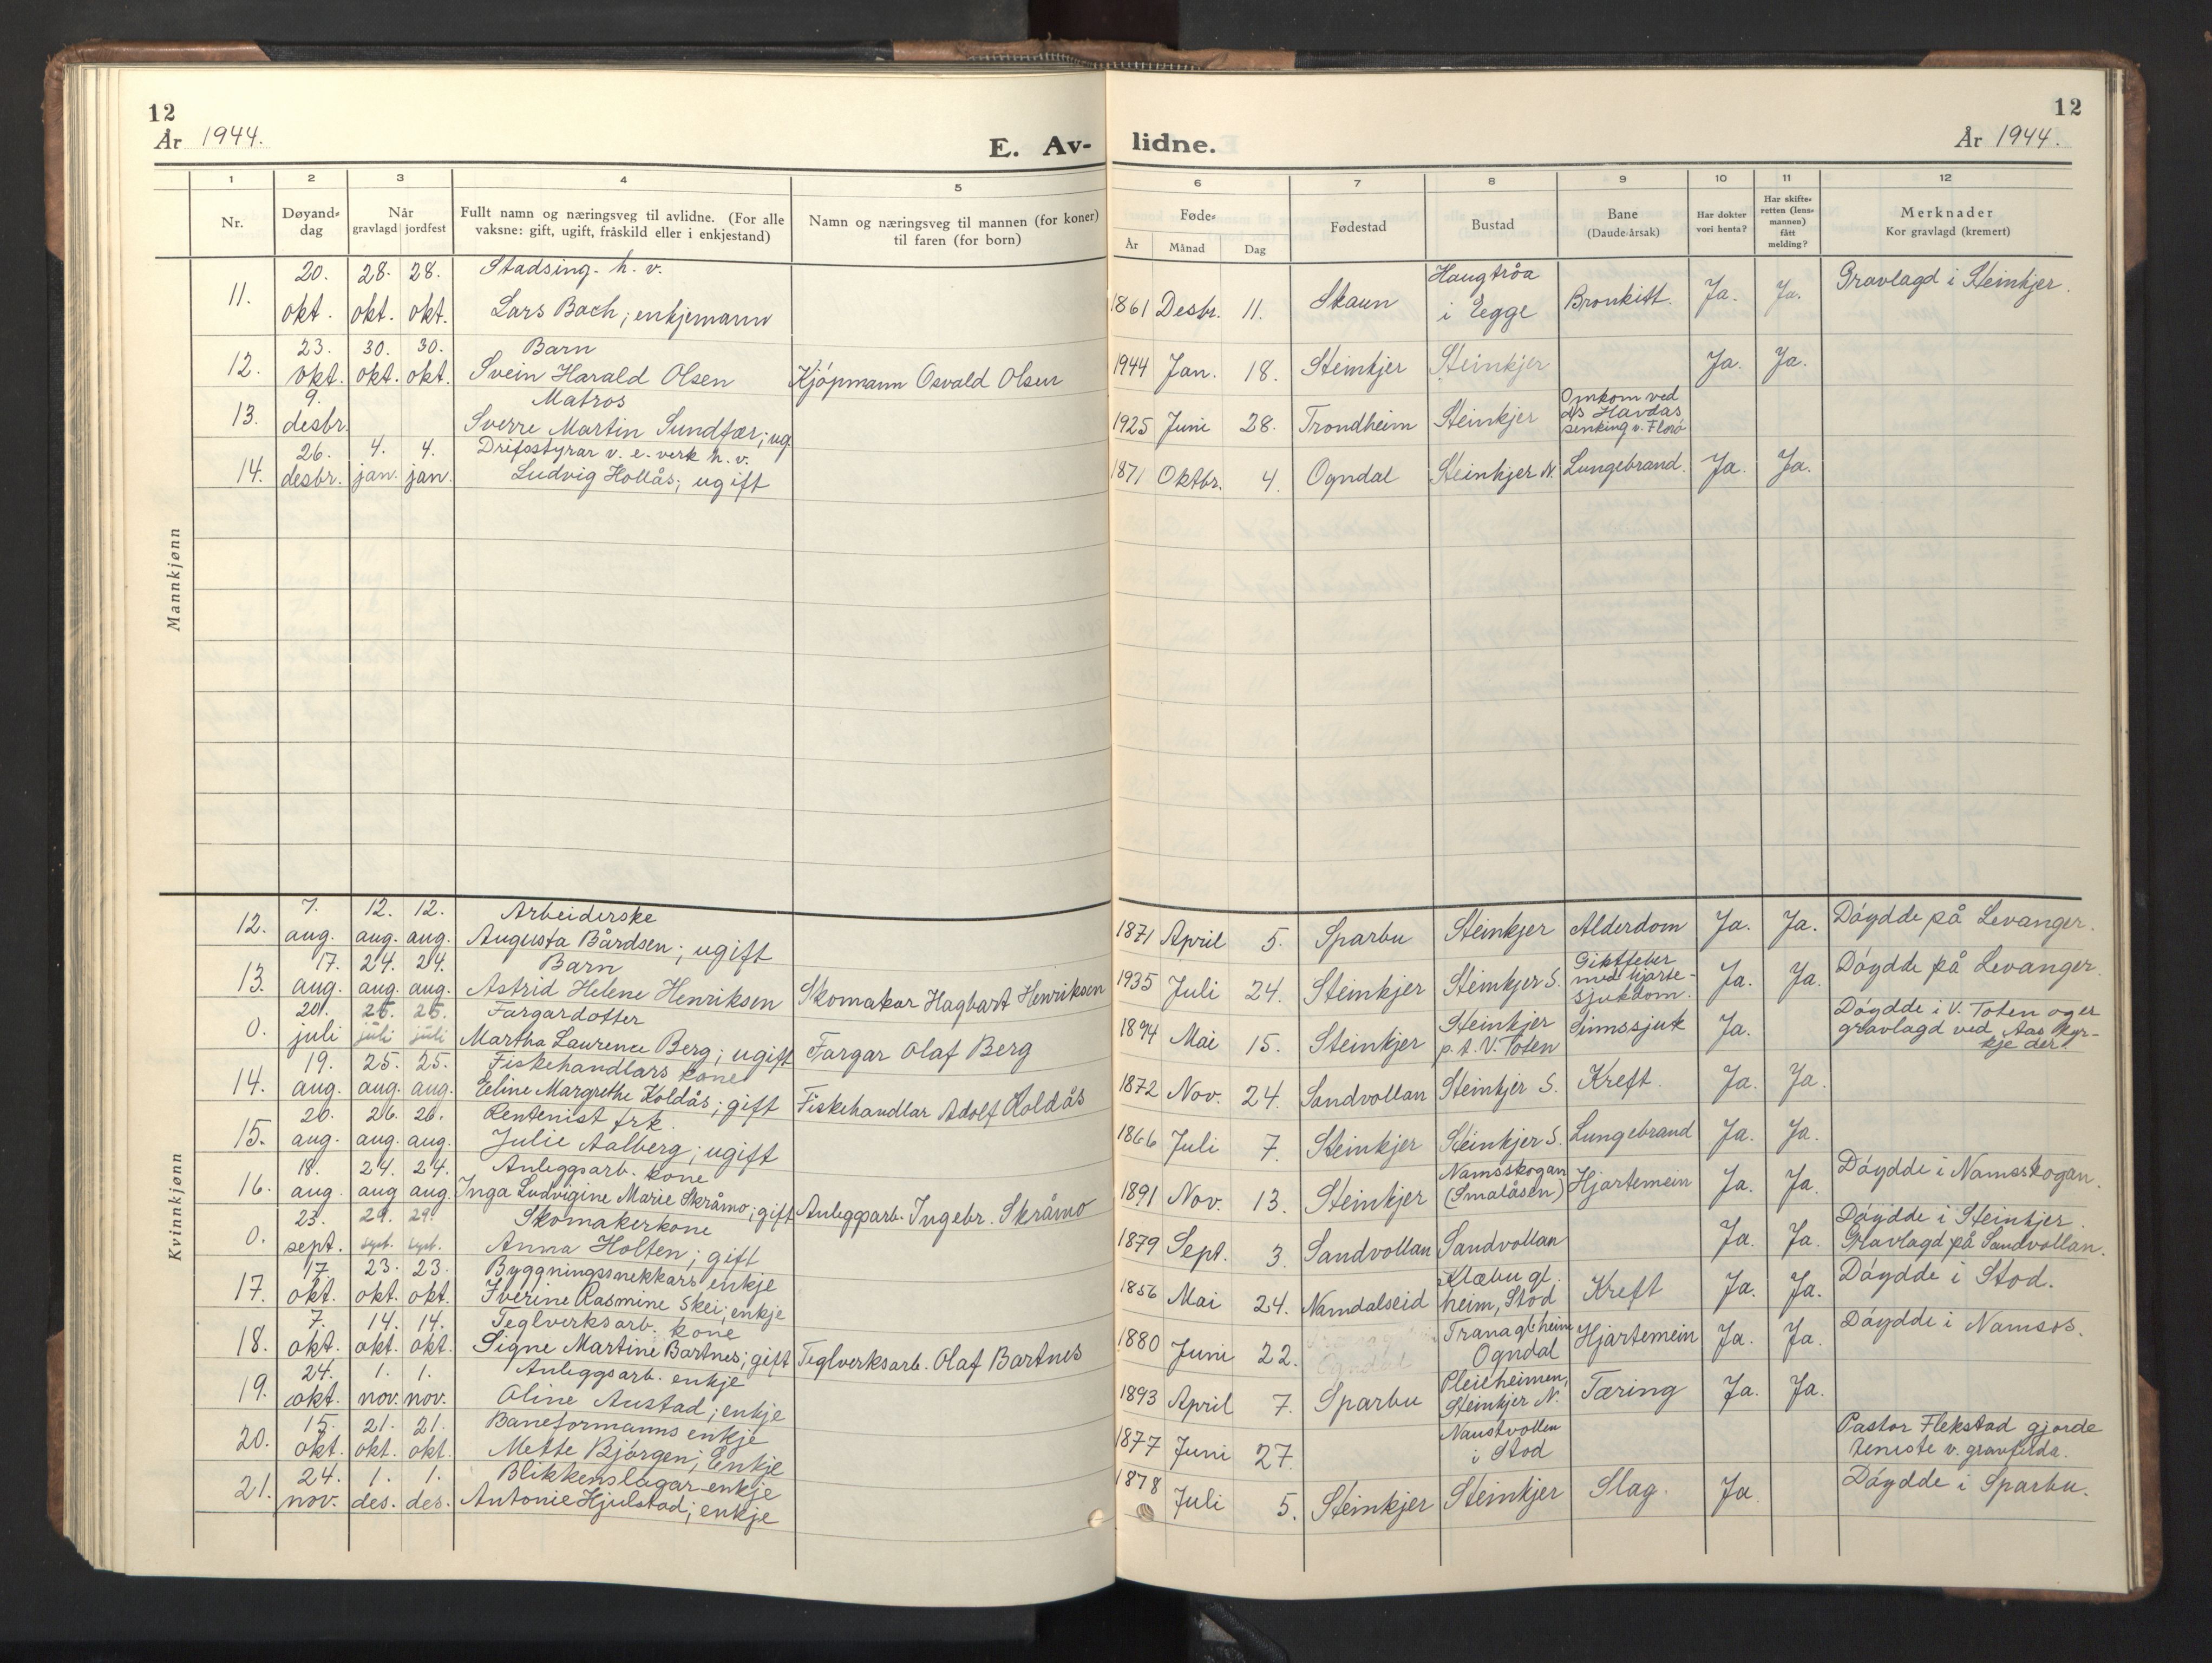 12
År 1944.
E. Av-
lidne.
12
År 1944.
1 2 3 4 5
6 7 8 9 10 11 12
Nr.
Døyand-
dag
Når
gravlagd jordfest
Fullt namn og næringsveg til avlidne. (For alle
vaksne: gift, ugift, fråskild eller i enkjestand)
Namn og næringsveg til mannen (for koner)
til faren (for born)
Føde-
År Månad Dag
Fødestad
Bustad
Bane
(Daude-årsak)
Har dokter
vori henta?
Har skifte-
retten (lens-
mannen)
fått
melding?
Merknader
Kor gravlagd (kremert)
Mannkjønn
11. 20. 28. 28. Stadsing. h. v.
okt. okt. okt. Lars Bach; enkjemann
1861 Desbr. 11. Skaun Haugtrøa
i Egge Bronkitt. Ja. Ja. Gravlagd i Steinkjer.
12. 23. 30. 30. Barn
okt. okt. okt. Svein Harald Olsen Kjøpmann Osvald Olsen
1944 Jan. 18. Steinkjer Steinkjer Ja. Ja.
13. 9. Matros
desbr. Sverre Martin Sundfær; ug.
1925 Juni 28. Trondheim Steinkjer Omkom ved
d/s Havdas
senking v. Florø
14. 26. 4. 4. Drifsstyrar v. e. verk h. v.
desbr. jan. jan. Ludvig Hollås; ugift
1871 Oktbr. 4. Ogndal Steinkjer N. Lungebrand. Ja. Ja.
Kvinnkjønn
12. 7. 12. 12. Arbeiderske
aug. aug. aug. Augusta Bårdsen; ugift
1871 April 5. Sparbu Steinkjer Alderdom Ja. Ja. Døydde på Levanger.
13. 17. 24. 24. Barn
aug. aug. aug. Astrid Helene Henriksen Skomakar Hagbart Henriksen
1935 Juli 24. Steinkjer Steinkjer S. Giktfeber
med hjarte-
sjukdom. Ja. Ja. Døydde på Levanger.
0. 20. 26. 26. Fargardotter
juli juli juli Martha Laurence Berg; ugift Fargar Olaf Berg
1894 Mai 15. Steinkjer Steinkjer
p. t. V. Toten Sinnssjuk Ja. Døydde i V. Toten og er
gravlagd ved Aas kyr-
kje der.
14. 19. 25. 25. Fiskehandlars kone
aug. aug. aug. Eline Margrethe Koldås; gift Fiskehandlar Adolf Holdås
1872 Nov. 24. Sandvollan Steinkjer S. Kreft. Ja. Ja.
15. 20. 26. 26. Rentenist frk.
aug. aug. aug. Julie Aalberg; ugift
1866 Juli 7. Steinkjer Steinkjer S. Lungebrand Ja. Ja.
16. 18. 24. 24. Anleggsarb. kone
aug. aug aug. Inga Ludvigine Marie Skråmo; gift Anleggsarb. Ingebr. Skråmo
1891 Nov. 13. Steinkjer Namsskogan
(Smalåsen) Hjartemein Ja. Ja. Døydde i Namsskogan.
0. 23. 29. 29. Skomakerkone
sept. sept. sept. Anna Holten; gift
1879 Sept. 3. Sandvollan Sandvollan Ja. Ja. Døydde i Steinkjer.
Gravlagd på Sandvollan.
17. 17. 23. 23. Byggningssnekkars enkje
okt. okt. okt. Iverine Rasmine Skei; enkje
1856 Mai 24. Namdalseid Klæbu gl.
heim, Stod Kreft Ja. Ja. Døydde i Stod.
18. 7. 14. 14. Teglverksarb. kone
okt. okt. okt. Signe Martine Bartnes; gift Teglverksarb. Olaf Bartnes
1880 Juni 22. Ogndal Trana glheim
Ogndal Hjartemein Ja. Ja. Døydde i Namsos.
19. 24. 1. 1. Anleggsarb. enkje
okt. nov. nov. Oline Austad; enkje
1893 April 7. Sparbu Pleieheimen,
Steinkjer N. Tæring Ja. Ja.
20. 15. 21. 21. Baneformanns enkje
okt. okt. okt. Mette Bjørgen; Enkje
1877 Juni 27. Naustvollen
i Stod Pastor Flekstad gjorde
teneste v. gravferda.
21. 24. 1. 1. Blikkenslagar-enkje
nov. des. des. Antonie Hjulstad; enkje
1878 Juli 5. Steinkjer Steinkjer Slag. Ja Døydde i Sparbu.